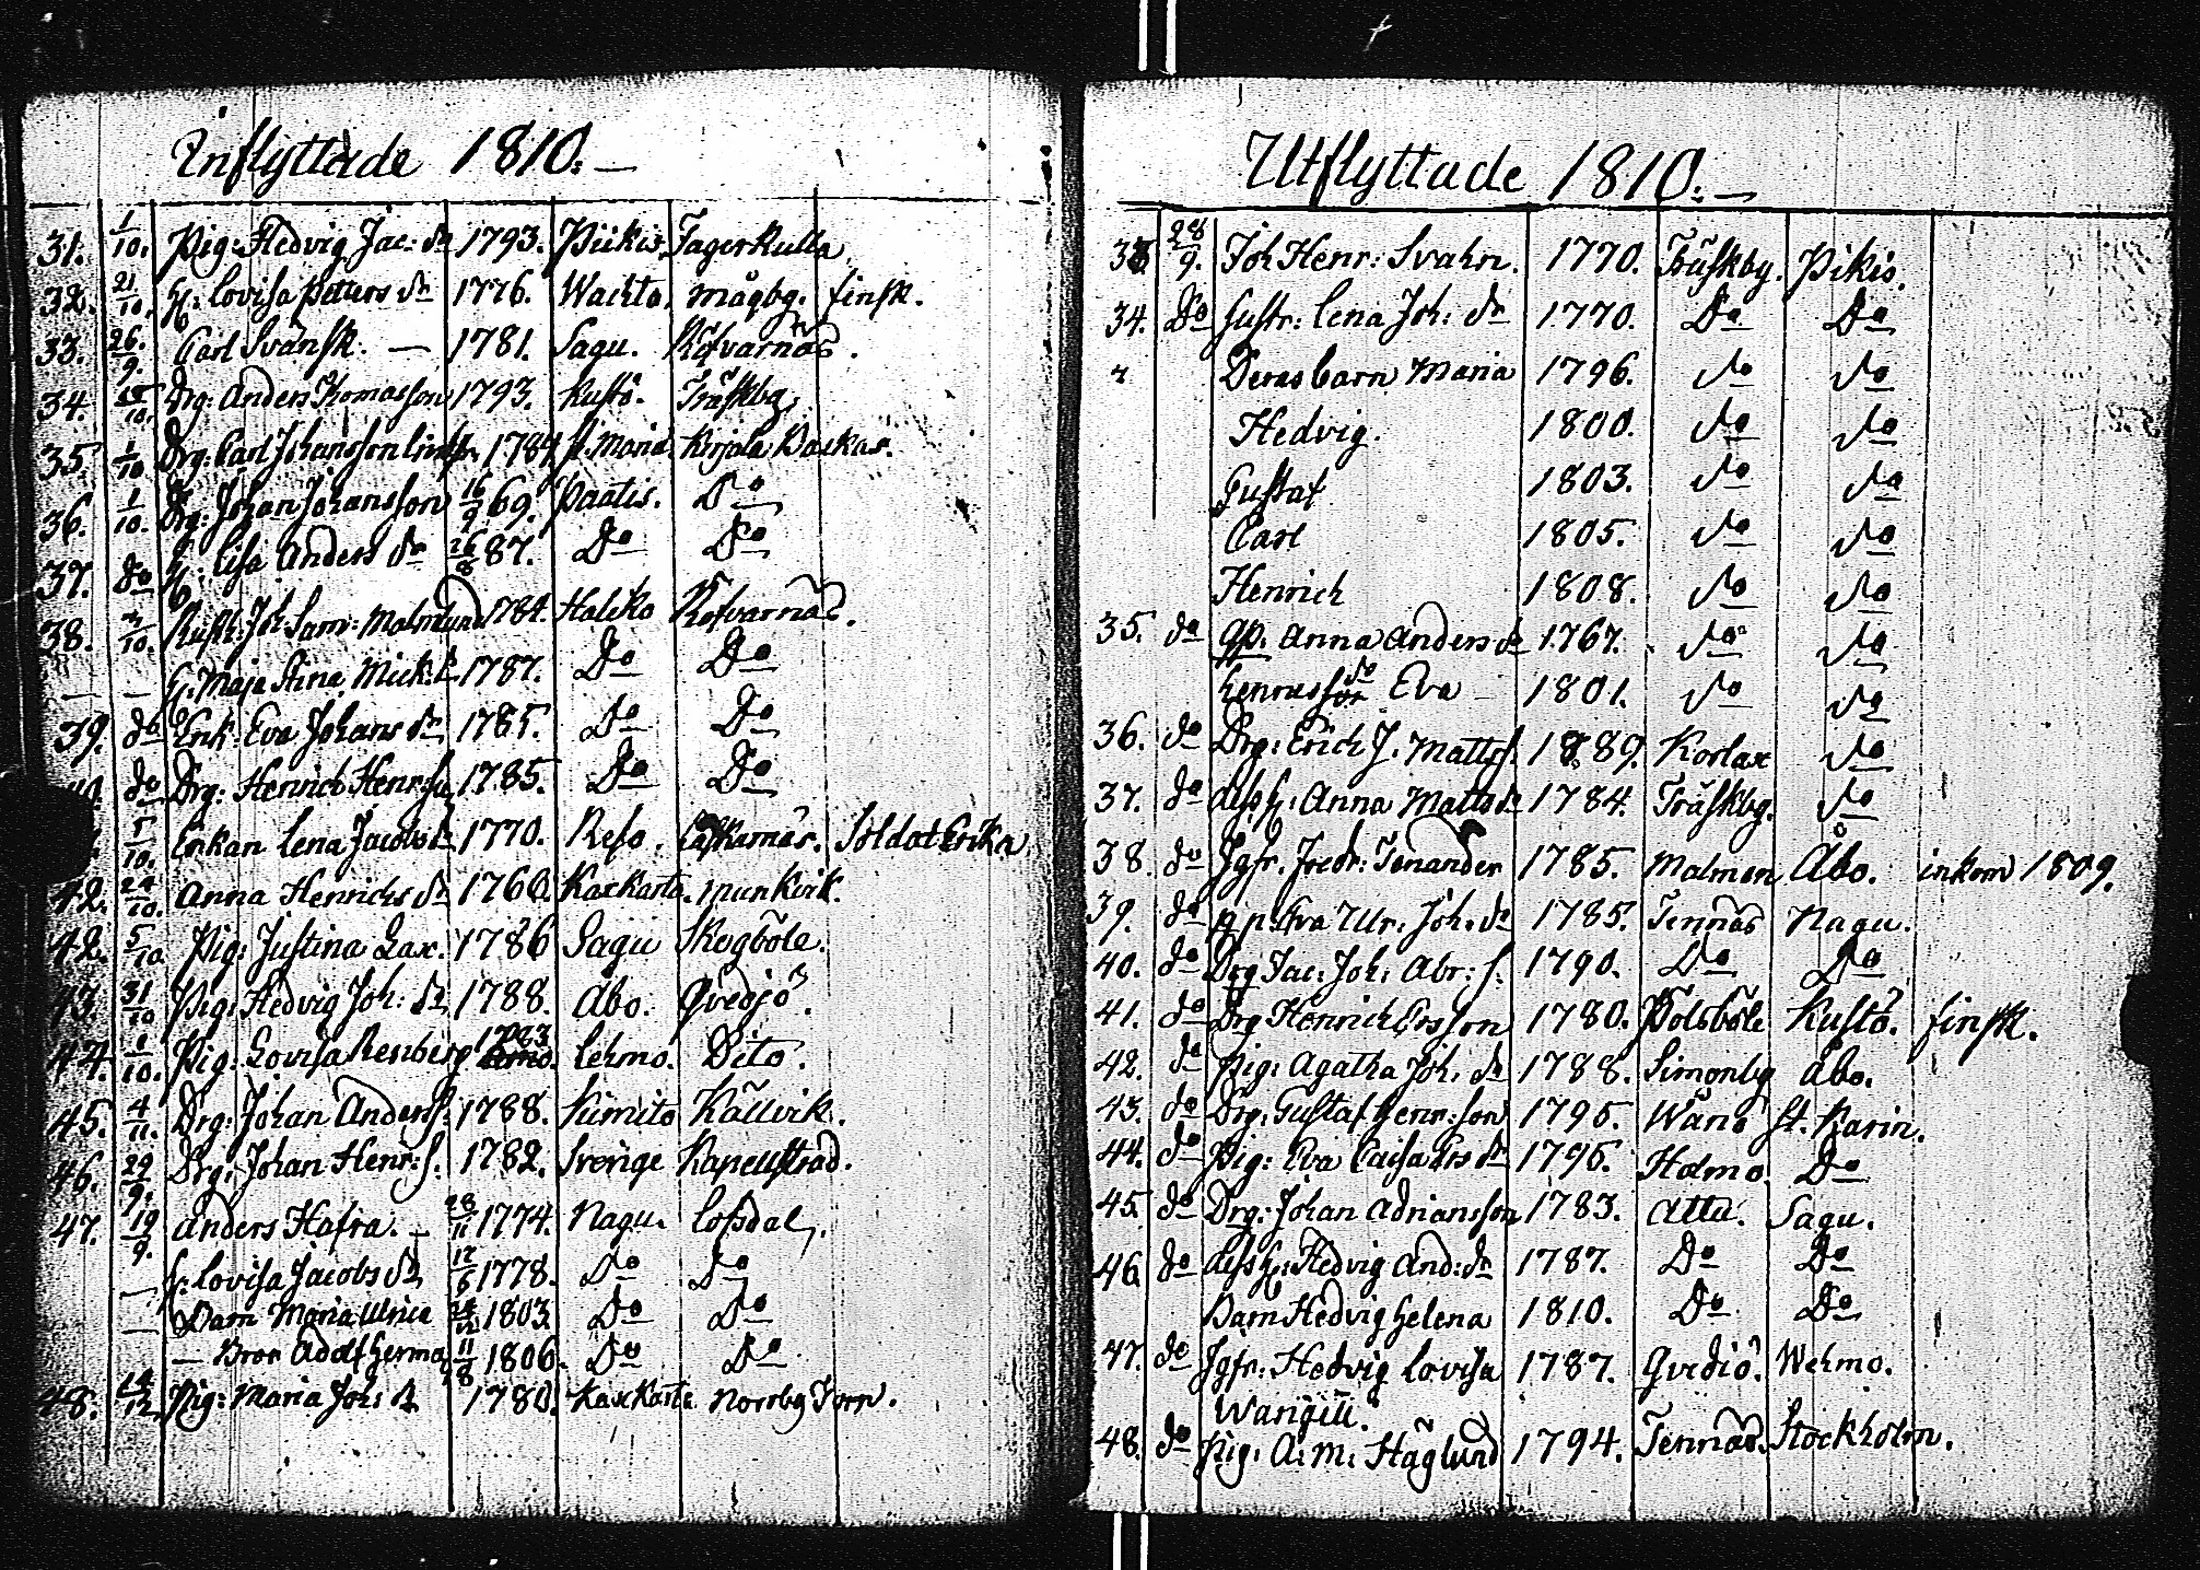 Inflyttade 1810.
31. 1/10. Pig: Hedvig Jac: dr 1793. Piikis. Tagerkulla.
32. 21/10. H: Lovisa Peters dr 1776. Wachta. Mågby. finsk.
33. 26/9. Carl Svänsk. — 1781. Sagu. Räfvarnäs.
34. /10. Drg: Anders Thomasson 1793. Kustö. Träskby.
35. 1/10 Drg: Carl Johansson 1784 St. Maria Kirjala Backas.
36. 1/10. Drg: Johan Johansson 16/9 69. Paatis. Do
37. do H: Lisa Anders dr 26/8 87. Do Do
38. /10. Joh: Sam: Malmlund 1784. Haliko Refvarnäs.
— — H. Maja Stina Mick: d. 1787. Do Do
39. do Enk: Eva Johans dr 1785. Do Do
do Drg: Henrich Henr: 1785. Do Do
/10. Enkan Lena Jacobs d. 1770. Reso. Soldat Enka
42. 24/10. Anna Henrichs dr 1760. Kaxkarta. Munkvik.
42. 5/10 Pig: Justina Lax. 1786 Sagu Skogböle.
43. 31/10 Pig: Hedvig Joh: dr 1788. Åbo. Qvedjö.
44. /10. Pig: Lovisa Renberg 1783 Lehmo. Dito.
45. 4/11. Drg: Johan Anderss. 1788. Kimito Källvik.
46. 29/9. Drg: Johan Henr: s. 1782. Sverige Kapellstrad.
47. 19/9. Anders Hafra. — 28/11 1774. Nagu. Lofsdal.
— H: Lovisa Jacobs dr 17/6 1778. Do Do
— Barn Maria Ulrica 1803. Do Do
— Bror Adolf Herma 11/8 1806. Do Do
48. /12. Pig: Maria Joh: d. 1780. Kaxkarta Norrby Torp.
Utflyttade 1810.
33. 28/9. Joh Henr: Svahn. 1770. Träskby. Pikis.
34. Do Hustr: Lena Joh: dr 1770. Do Do
Deras barn Maria 1796. do do
Hedvig. 1800. do do
Gustaf 1803. do do
Carl 1805. do do
Henrich 1808. do do
35. do Anna Anders d 1767. do do
Eva — 1801. do do
36. do Drg: Erich J. Matts s. 1889. Korlax do
37. do dess H: Anna Matts dr 1784. Träskby. do
38. do Jgfr. Fredr: Tenander 1785. Malmen Åbo. inkom 1809.
39. do Eva Ulr: Joh: dr 1785. Tennäs Nagu.
40. do Drg Jac: Joh: Abr: s. 1790. Do Do
41. do Drg Henrich Ersson 1780. Polsböle Kustö. finsk.
42. do Pig: Agatha Joh: dr 1788. Simonby Åbo.
43. do Drg: Gustaf Henr: son 1795. Wånö St. Karin.
44. do Pig: Eva Caisa Ers dr 1796. Holmo. Do
45. do Drg: Johan Adriansson 1783. Attu. Sagu.
46. do dess H: Hedvig And: dr 1787. Do Do
Barn Hedvig Helena 1810. Do Do
47. do Jgfr: Hedvig Lovisa 1787. Qvidiö. Wehmo.
48. do Pig: A: M: Häglund 1794. Tennäs. Stockholm.